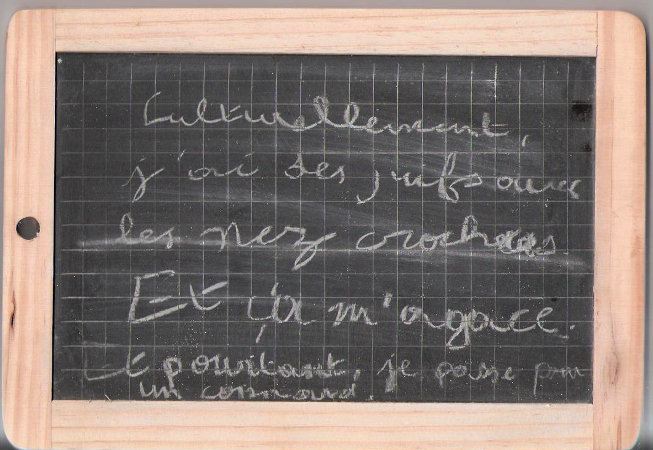 Culturellement,
j'ai des juifs avec
les nez crochus
Et ça m'agace.
Et pourtant, je passe pour
un connard.